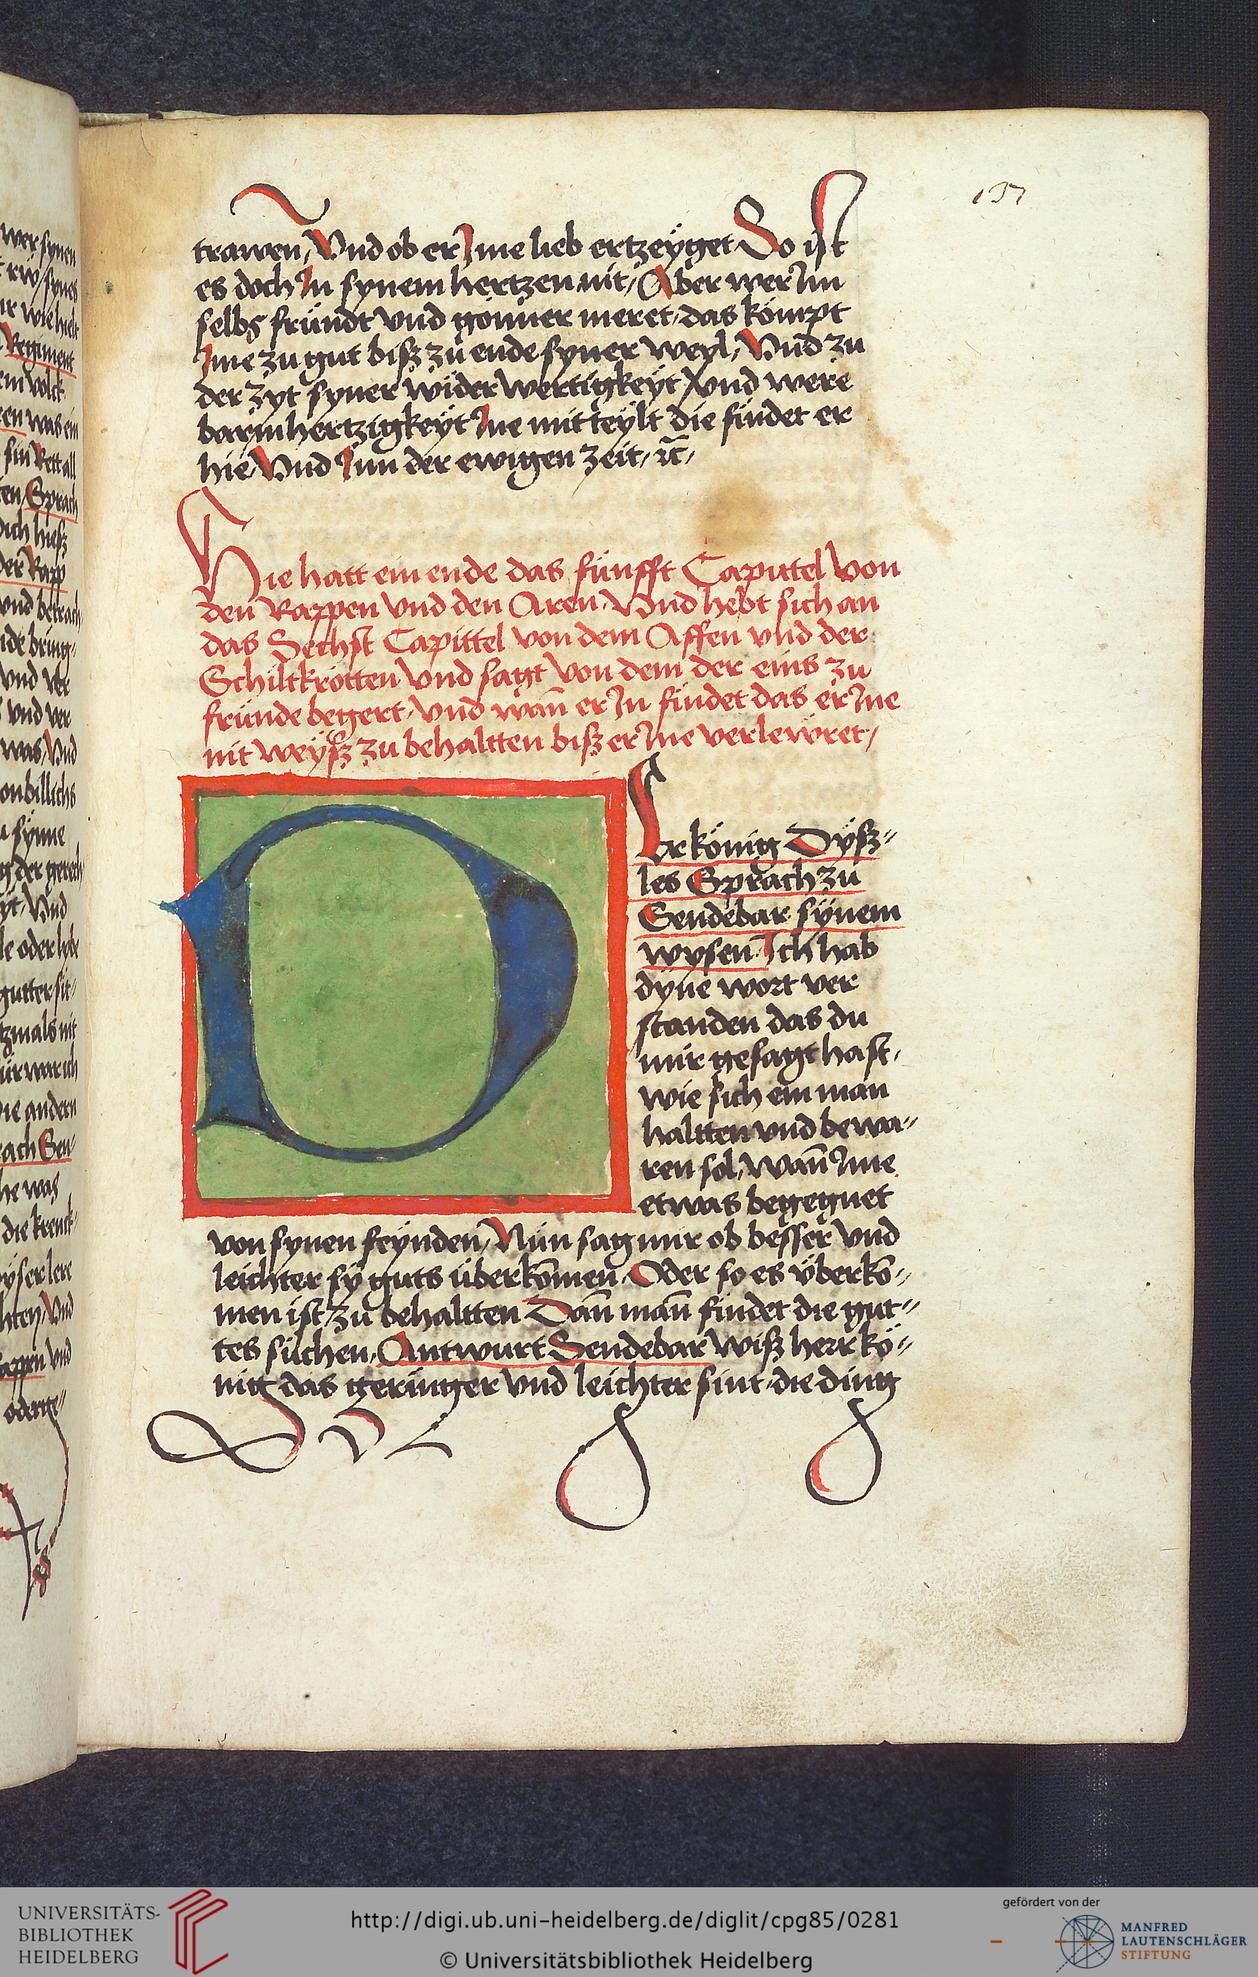 137
trawen, Vnd ob er Ime lieb ertzeyget So ist
es doch In synem hertzen nit, Aber wer Im
selbs fründt vnd gonner meret, das kompt
Ime zu gut bisz zu ende syner weyl, Vnd zu
der zyt syner widerwertigkeyt Vnd were
barmhertzigkeyt Ine mitteylt die findet er
hie Vnd Inn der ewigen zeit, ꝛc̄,
Hie hatt ein ende das fünfft Capittel von
den Rappen vnd den Aren, Vnd hebt sich an
das Sechst Capittel von dem Affen vnd der
Schiltkrotten Vnd sagt von dem der eins zu
fründe begert, vnd wan̄ er In findet das er Ine
nit weysz zu behaltten bisz er Ine verlewret,
Der könig Dysz=
les Sprach zu
Sendebar synem
wysen Ich hab
dyne wort ver
standen das du
mir gesagt hast,
wie sich ein man
haltten vnd bewa=
ren sol, wan̄ Ime
etwas begegnet
von synen feynden, Nün sag mir ob besser vnd
leichter sy guts überkōmen, Oder so es überkō=
men ist, zu behaltten Dan̄ man̄ findet die gut=
tes süchen, Antwurt Sendebar wisz herr kö=
nig das geringer vnd leichter sint, die ding
UNIVERSITÄTS-
BIBLIOTHEK
HEIDELBERG
http://digi.ub.uni-heidelberg.de/diglit/cpg85/0281
© Universitätsbibliothek Heidelberg
gefördert von der
MANFRED
LAUTENSCHLÄGER
STIFTUNG